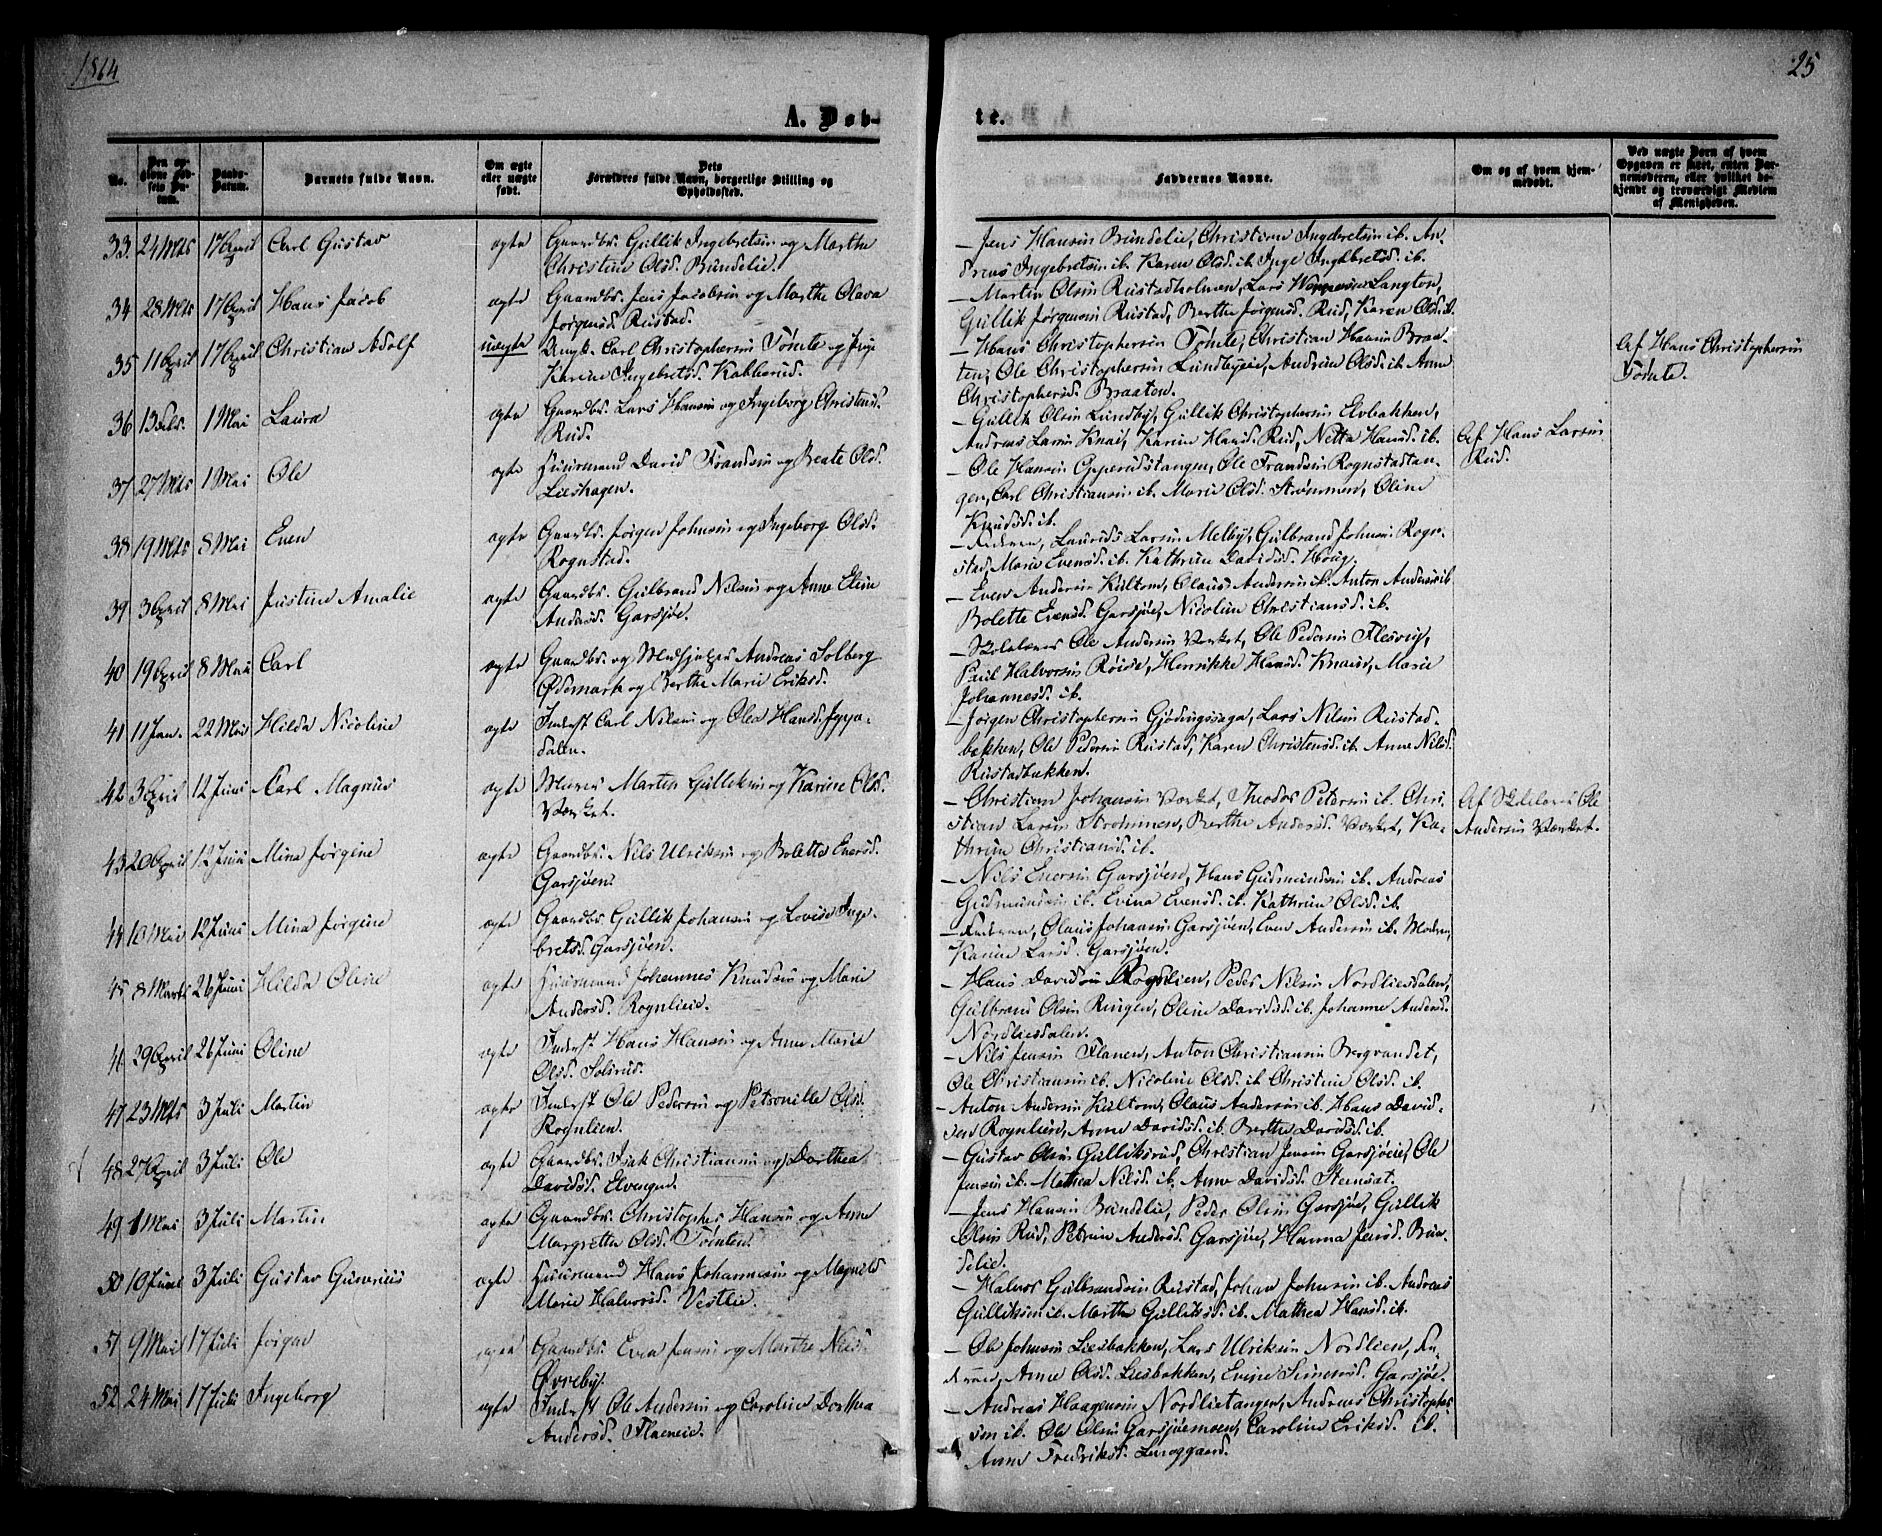 1864
25
A. Døb-
te.
No.
Den opgivne Fødsels Datum.
Daabs-Datum.
Barnets fulde Navn.
Om ægte eller uægte født.
Dets Forældres fulde Navn, borgerlige Stilling og Opholdssted.
Faddernes Navne.
Om og af hvem hjemmedøbt.
Ved uægte Barn af hvem Opgaven er skeet, enten Barnemoderen, eller hvilket bekjendt og troværdigt Medlem af Menigheden.
33. 24 Mts 17 April Carl Gustav ægte Gaardbr. Gullik Ingebretsen og Marthe
Christine Olsd. Bündelie.
– Jens Hansen Bündelie, Christian Ingebretsen ib. An-
dreas Ingebretsen ib. Karen Olsd. ib. Inge Ingebretsd. ib.
34 28 Mts 17 April Hans Jacob ægte Gaardbr. Jens Jacobsen og Marthe Olava
Jørgensd. Rustad.
– Martin Olsen Rustadholmen, Lars Langton,
Gullik Jørgensen Rustad, Berthe Jørgensd. Rud, Karen Olsd. ib.
35 11 April 17 April Christian Adolf uægte Ungk. Carl Christophersen Tømte og Inge
Karine Ingebretsd. Kabberud.
– Hans Christophersen Tømte, Christian Hansen Braa-
ten, Ole Christophersen Lundbyeie, Andrine Olsd. ib. Anne
Christophersd. Braaten.
Af Hans Christophersen
Tømte.
36 13 Febr. 1 Mai Laura ægte Gaardbr. Lars Hansen og Ingeborg Christensd.
Rud.
– Gullik Olsen Lundby, Gullik Christophersen Elvbakken,
Andreas Larsen Knai, Karine Hansd. Rud, Netta Hansd. ib.
Af Hans Larsen
Rud.
37 27 Mts 1 Mai Ole ægte Huusmand David Frandsen og Beate Olsd.
Lieshagen.
– Ole Hansen Opperudstangen, Ole Frandsen Rognstadtan-
gen, Carl Christiansen ib. Marie Olsd. Strømmen, Oline
Knudsd. ib.
38 19 Mts 8 Mai Even ægte Gaardbr. Jørgen Johnsen og Ingeborg Olsd.
Rognstad.
– Faderen, Laurids Larsen Melby, Gulbrand Johnsen Rogn-
stad, Marie Evensd. ib. Kathrine Davidsd. Houg.
39 3 April 8 Mai Justine Amalie ægte Gaardbr. Gulbrand Nilsen og Anne Eline
Andersd. Garsjøe.
– Even Andersen Kultom, Olaus Andersen ib. Anton Andersen ib.
Bolette Evensd. Garsjøe, Nicoline Christiansd. ib.
40 19 April 8 Mai Carl ægte Gaardbr. og Medhjelper Andreas Solberg
Ødemark og Berthe Marie Eriksd.
– Skolelærer Ole Andersen Værket, Ole Pedersen Flesvig,
Paul Halvorsen Røise, Henrikke Hansd. Knaied, Marie
Johannesd. ib.
41 11 Jan. 22 Mai Hilda Nicoline ægte Inderst Carl Nilsen og Olea Hansd. Jeppe-
dalen.
– Jørgen Christophersen Gjødingssaga, Lars Nilsen Rustad-
bakken, Ole Pedersen Rustad, Karen Christensd. ib. Anne Nilsd.
Rustadbakken.
42 3 April 12 Juni Carl Magnus ægte Murer Martin Gulliksen og Karine Olsd.
Værket.
– Christian Johansen Værket, Theodor Petersen ib. Chri-
stian Larsen Strømmen, Berthe Andersd. Værket, Ka-
thrine Christiansd. ib.
Af Skolelærer Ole
Andersen Værket.
43 20 April 12 Juni Mina Jørgine ægte Gaardbr. Nils Ulriksen og Bolette Enersd.
Garsjøen.
– Nils Enersen Garsjøen, Hans Gudmundsen ib. Andreas
Gudmundsen ib. Evina Evensd. ib. Kathrine Olsd. ib.
44 10 Mai 12 Juni Mina Jørgine ægte Gaardbr. Gullik Johansen og Lovise Inge-
bretsd. Garsjøen.
– Faderen, Olaus Johansen Garsjøen, Even Andersen ib. Moderen,
Karine Larsd. Garsjøen.
45 8 Marts 26 Juni Hilda Oline ægte Huusmand Johannes Knudsen og Marie
Andersd. Rognlieie.
– Hans Davidsen Rognlien, Peder Nilsen Nordliesdalen,
Gulbrand Olsen Ringen, Oline Davidsd. ib. Johanne Andersd.
Nordliesdalen.
46 29 April 26 Juni Oline ægte Inderst Hans Hansen og Anne Marie
Olsd. Solrud.
– Nils Jensen Flanen, Anton Christiansen Bergvandet,
Ole Christiansen ib. Nicoline Olsd. ib. Christine Olsd. ib.
47 23 Mts 3 Juli Martin ægte Inderst Ole Pedersen og Petronille Olsd.
Rognlien.
– Anton Andersen Kultom, Olaus Andersen ib. Hans David-
sen Rognlien, Anne Davidsd. ib. Berthe Davidsd. ib.
48 27 April 3 Juli Ole ægte Gaardbr. Isak Christiansen og Dorthea
Davidsd. Elvengen.
– Gustav Olsen Gulliksrud, Christian Jensen Garsjøeie, Ole
Jensen ib. Mathea Nilsd. ib. Anne Davidsd. Steensæt.
49 1 Mai 3 Juli Martin ægte Gaardbr. Christopher Hansen og Anne
Margrethe Olsd. Tømten.
– Jens Hansen Bündelie, Peder Olsen Garsjøe, Gullik
Olsen Rud, Petrine Andersd. Garsjøe, Hanna Jensd. Bün-
delie.
50 10 Juni 3 Juli Gustav Gunerius ægte Huusmand Hans Johannesen og Magnild
Marie Halvorsd. Vestlie.
– Halvor Gulbrandsen Rustad, Johan Johnsen ib. Andreas
Gulliksen ib. Marthe Gulliksd. ib. Mathea Hansd. ib.
51 9 Mai 17 Juli Jørgen ægte Gaardbr. Even Jensen og Marthe Nilsd.
Øvreby.
– Ole Johnsen Liesbakken, Lars Ulriksen Nordlieen, Fa-
deren, Anne Olsd. Liesbakken, Evine Simensd. Garsjøe.
52 24 Mai 17 Juli Ingeborg ægte Inderst Ole Andersen og Caroline Dorthea
Andersd. Flaeneie.
– Andreas Haagensen Nordlietangen, Andreas Christopher-
sen ib. Ole Olsen Garsjøemoen, Caroline Eriksd. ib.
Anne Fredriksd. Lunggaard.